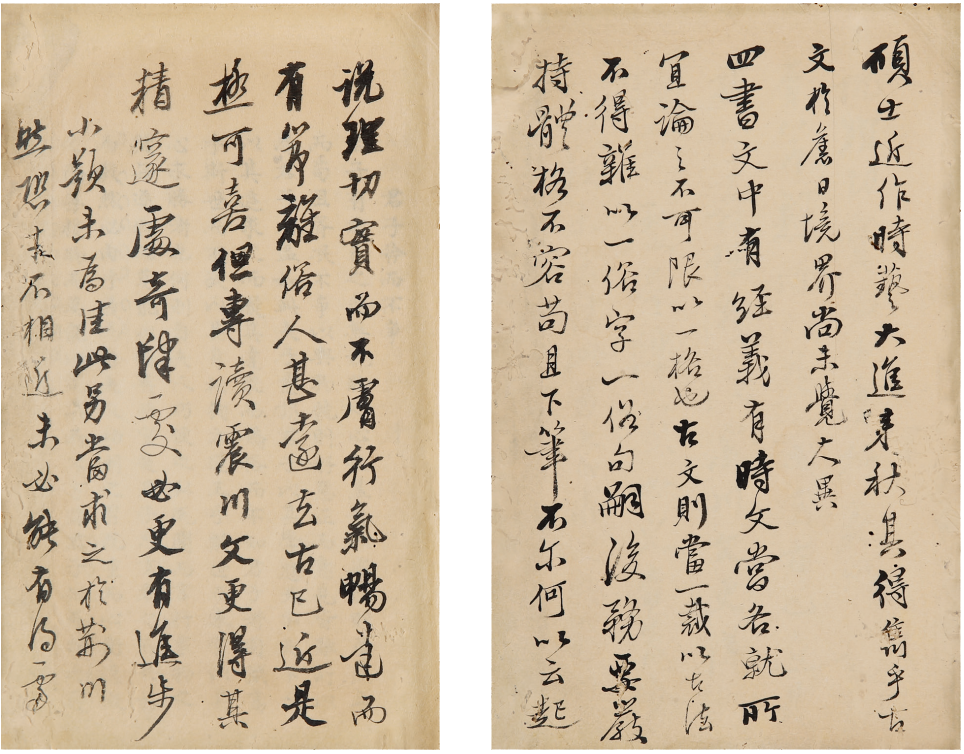 碩士近作時藝大進對秋淇得雋乎古
文於舊日境界尚未覺大異
四書文中有經義有時文當各就所
宜論之不可限以一格也古文則當一裁以古法
不得雜以一俗字一俗句嗣後務要嚴
持體格不容苟且下筆不尔何以云起
说理切實而不膚行氣暢達而
有節離俗人甚遠去古已近是
極可喜但專讀震川文更得其
精邃處奇肆處必更有進步
小題未為佳此另當求之於荊川
然恐才不相近未必能有得處